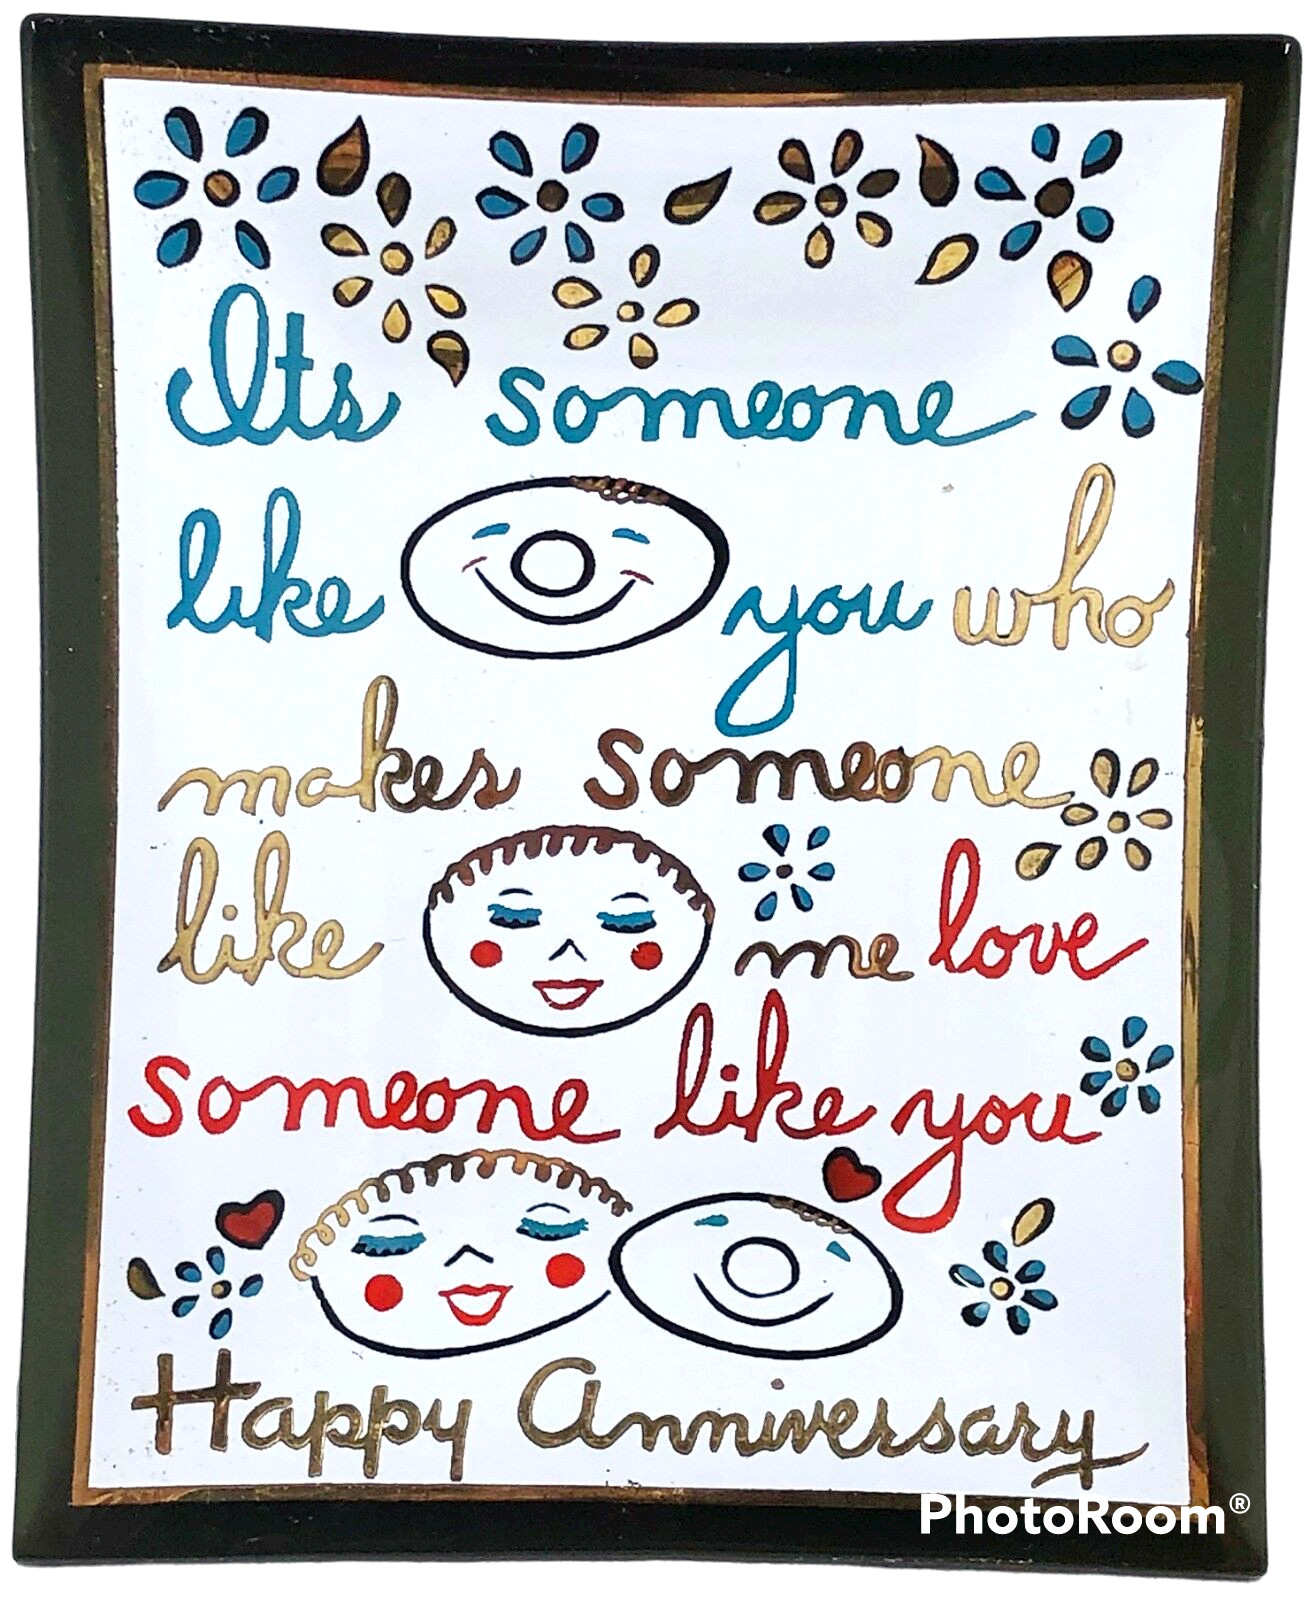 Its someone
like you who
makes someone
like me love
someone like you
Happy Anniversary
PhotoRoom®